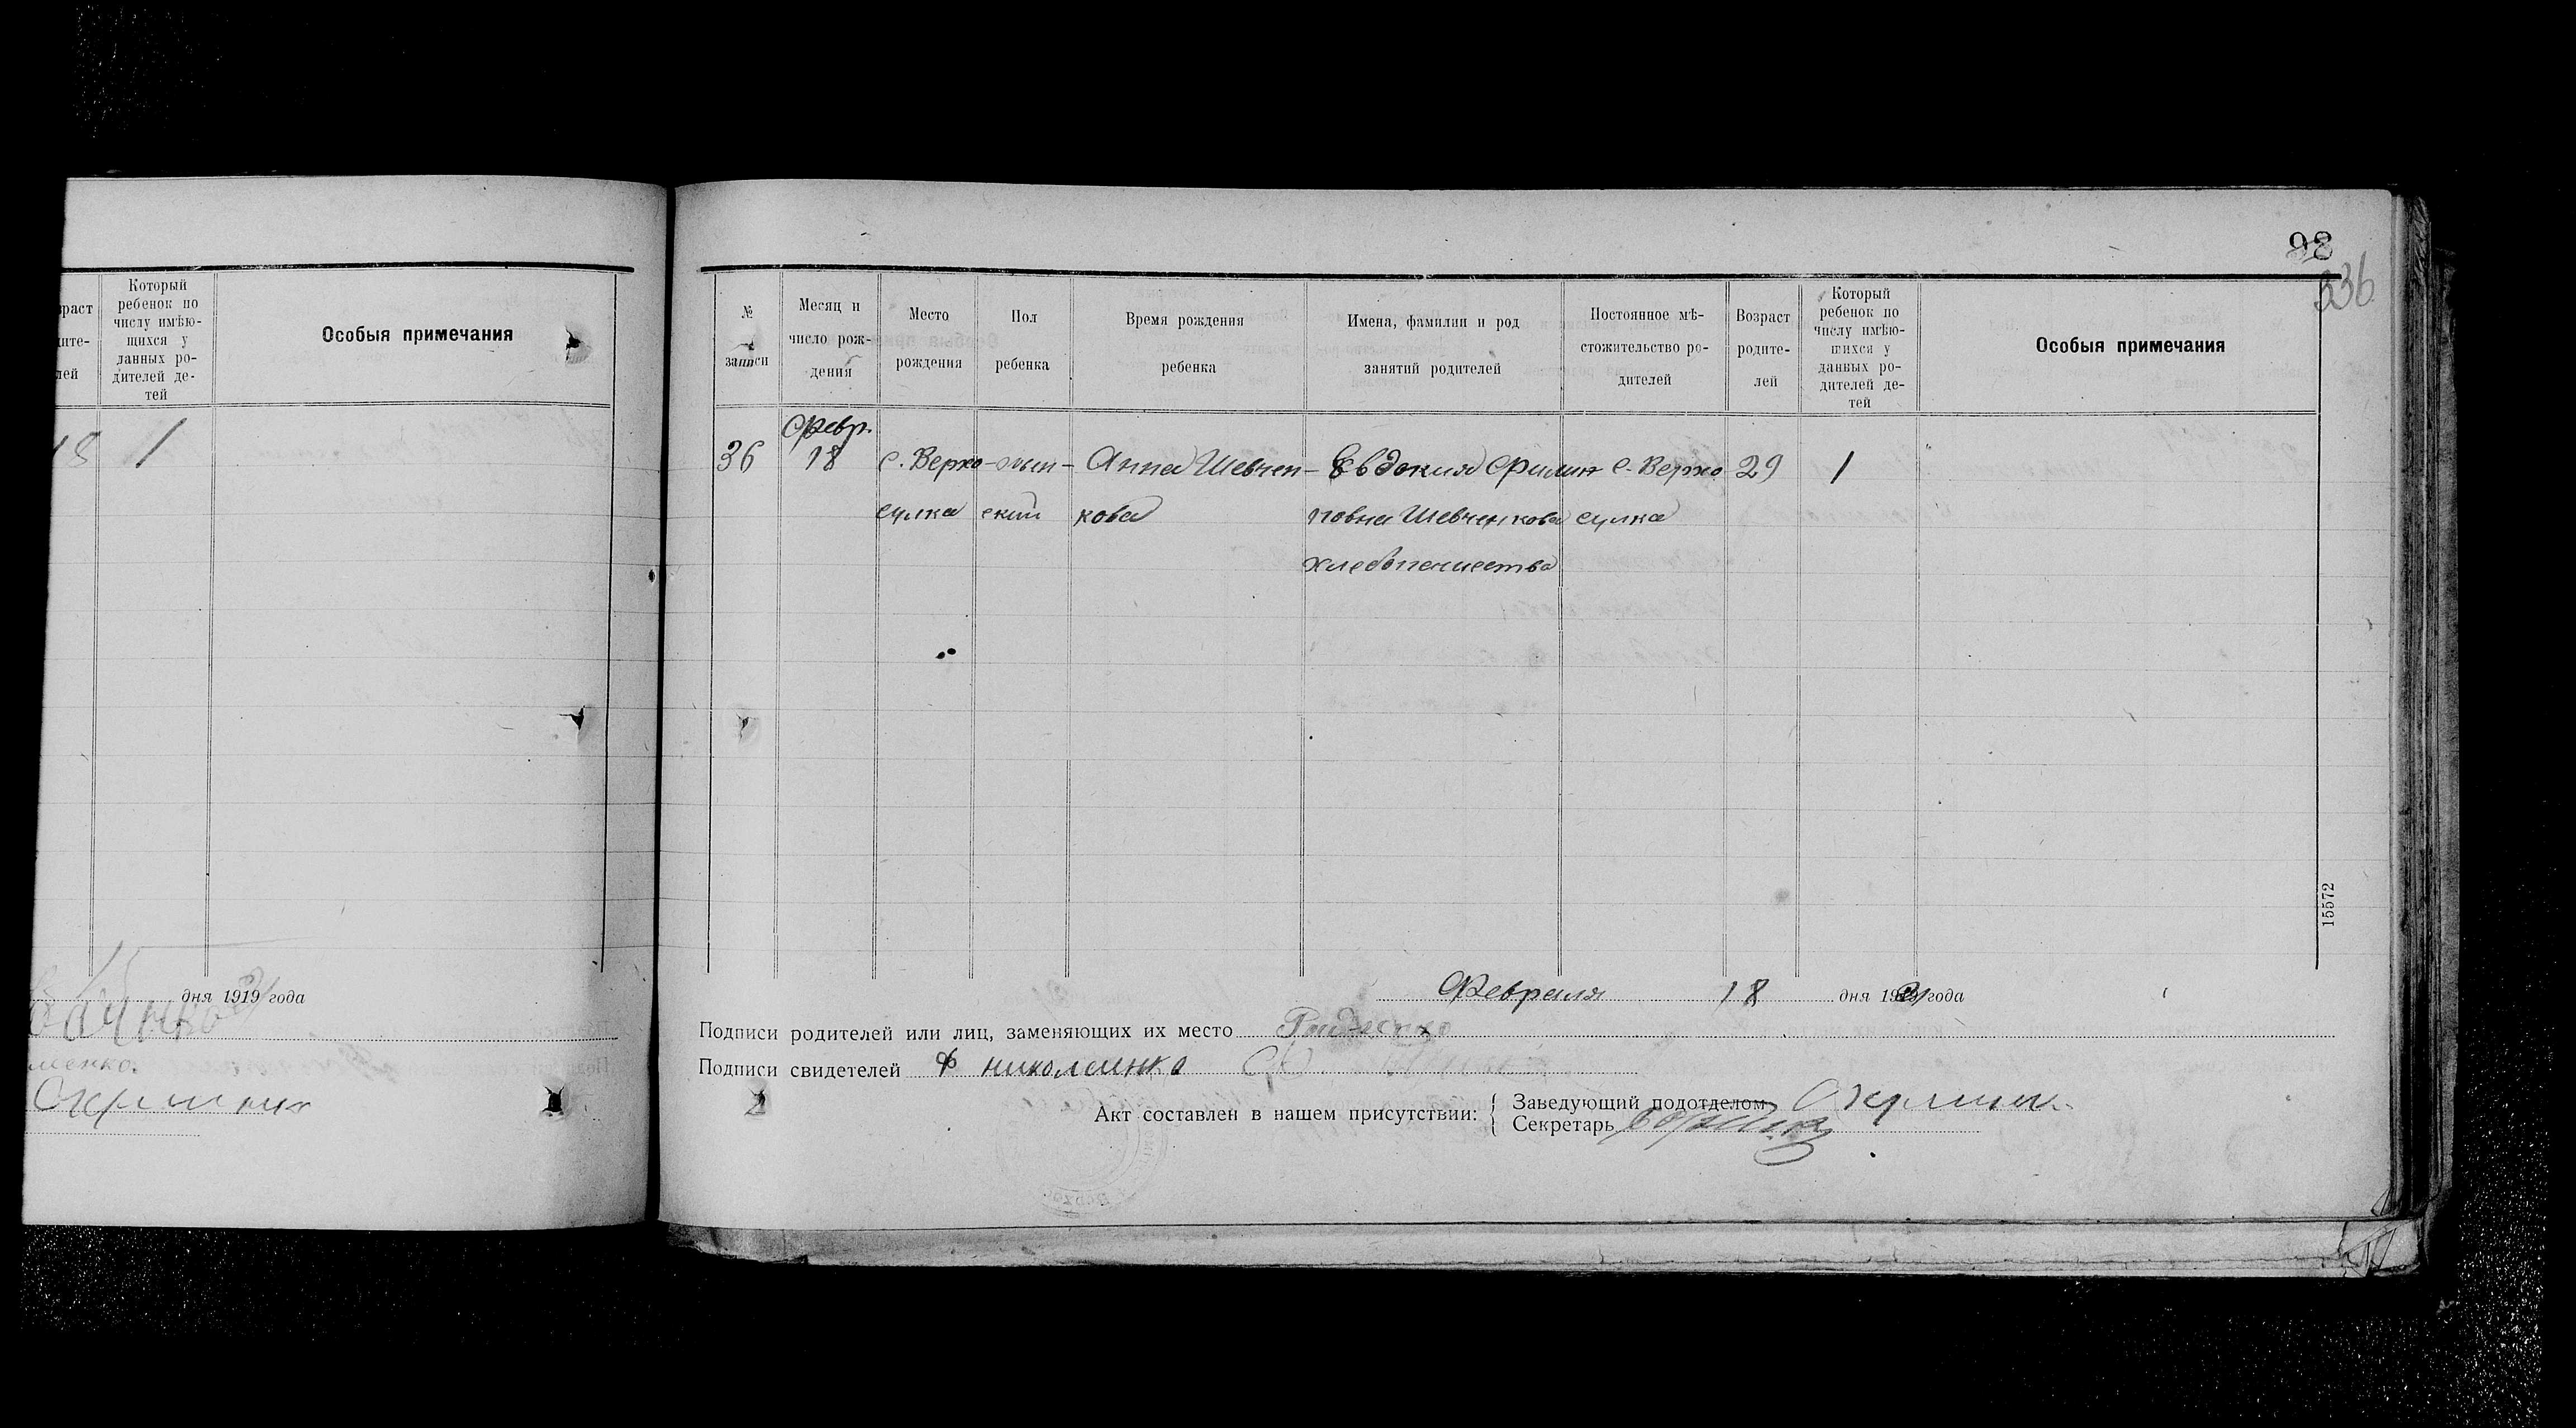 раст
ите-
лей
Который
ребенок по
числу имѣю-
щихся у
данных ро-
дителей де-
тей
Особыя примечания
18
1
дня 1919 года
менко
98
336
№
записи
Месяц и
число рож-
дения
Место
рождения
Пол
ребенка
Время рождения
ребенка
Имена, фамилии и род
занятий родителей
Постоянное мѣ-
стожительство ро-
дителей
Возраст
родите-
лей
Который
ребенок по
числу имѣю-
щихся у
данных ро-
дителей де-
тей
Особыя примечания
Февр.
36 18 с. Верхо- Анна Шевчен- Евдокия Филип с. Верхо 29 1
сулка ский кова повна Шевченкова сулка
хлебопашества
15572
Февраля 18 дня 19 года
Подписи родителей или лиц, заменяющих их место
Подписи свидетелей Николаенко
Акт составлен в нашем присутствии:
Заведующий подотделом
Секретарь